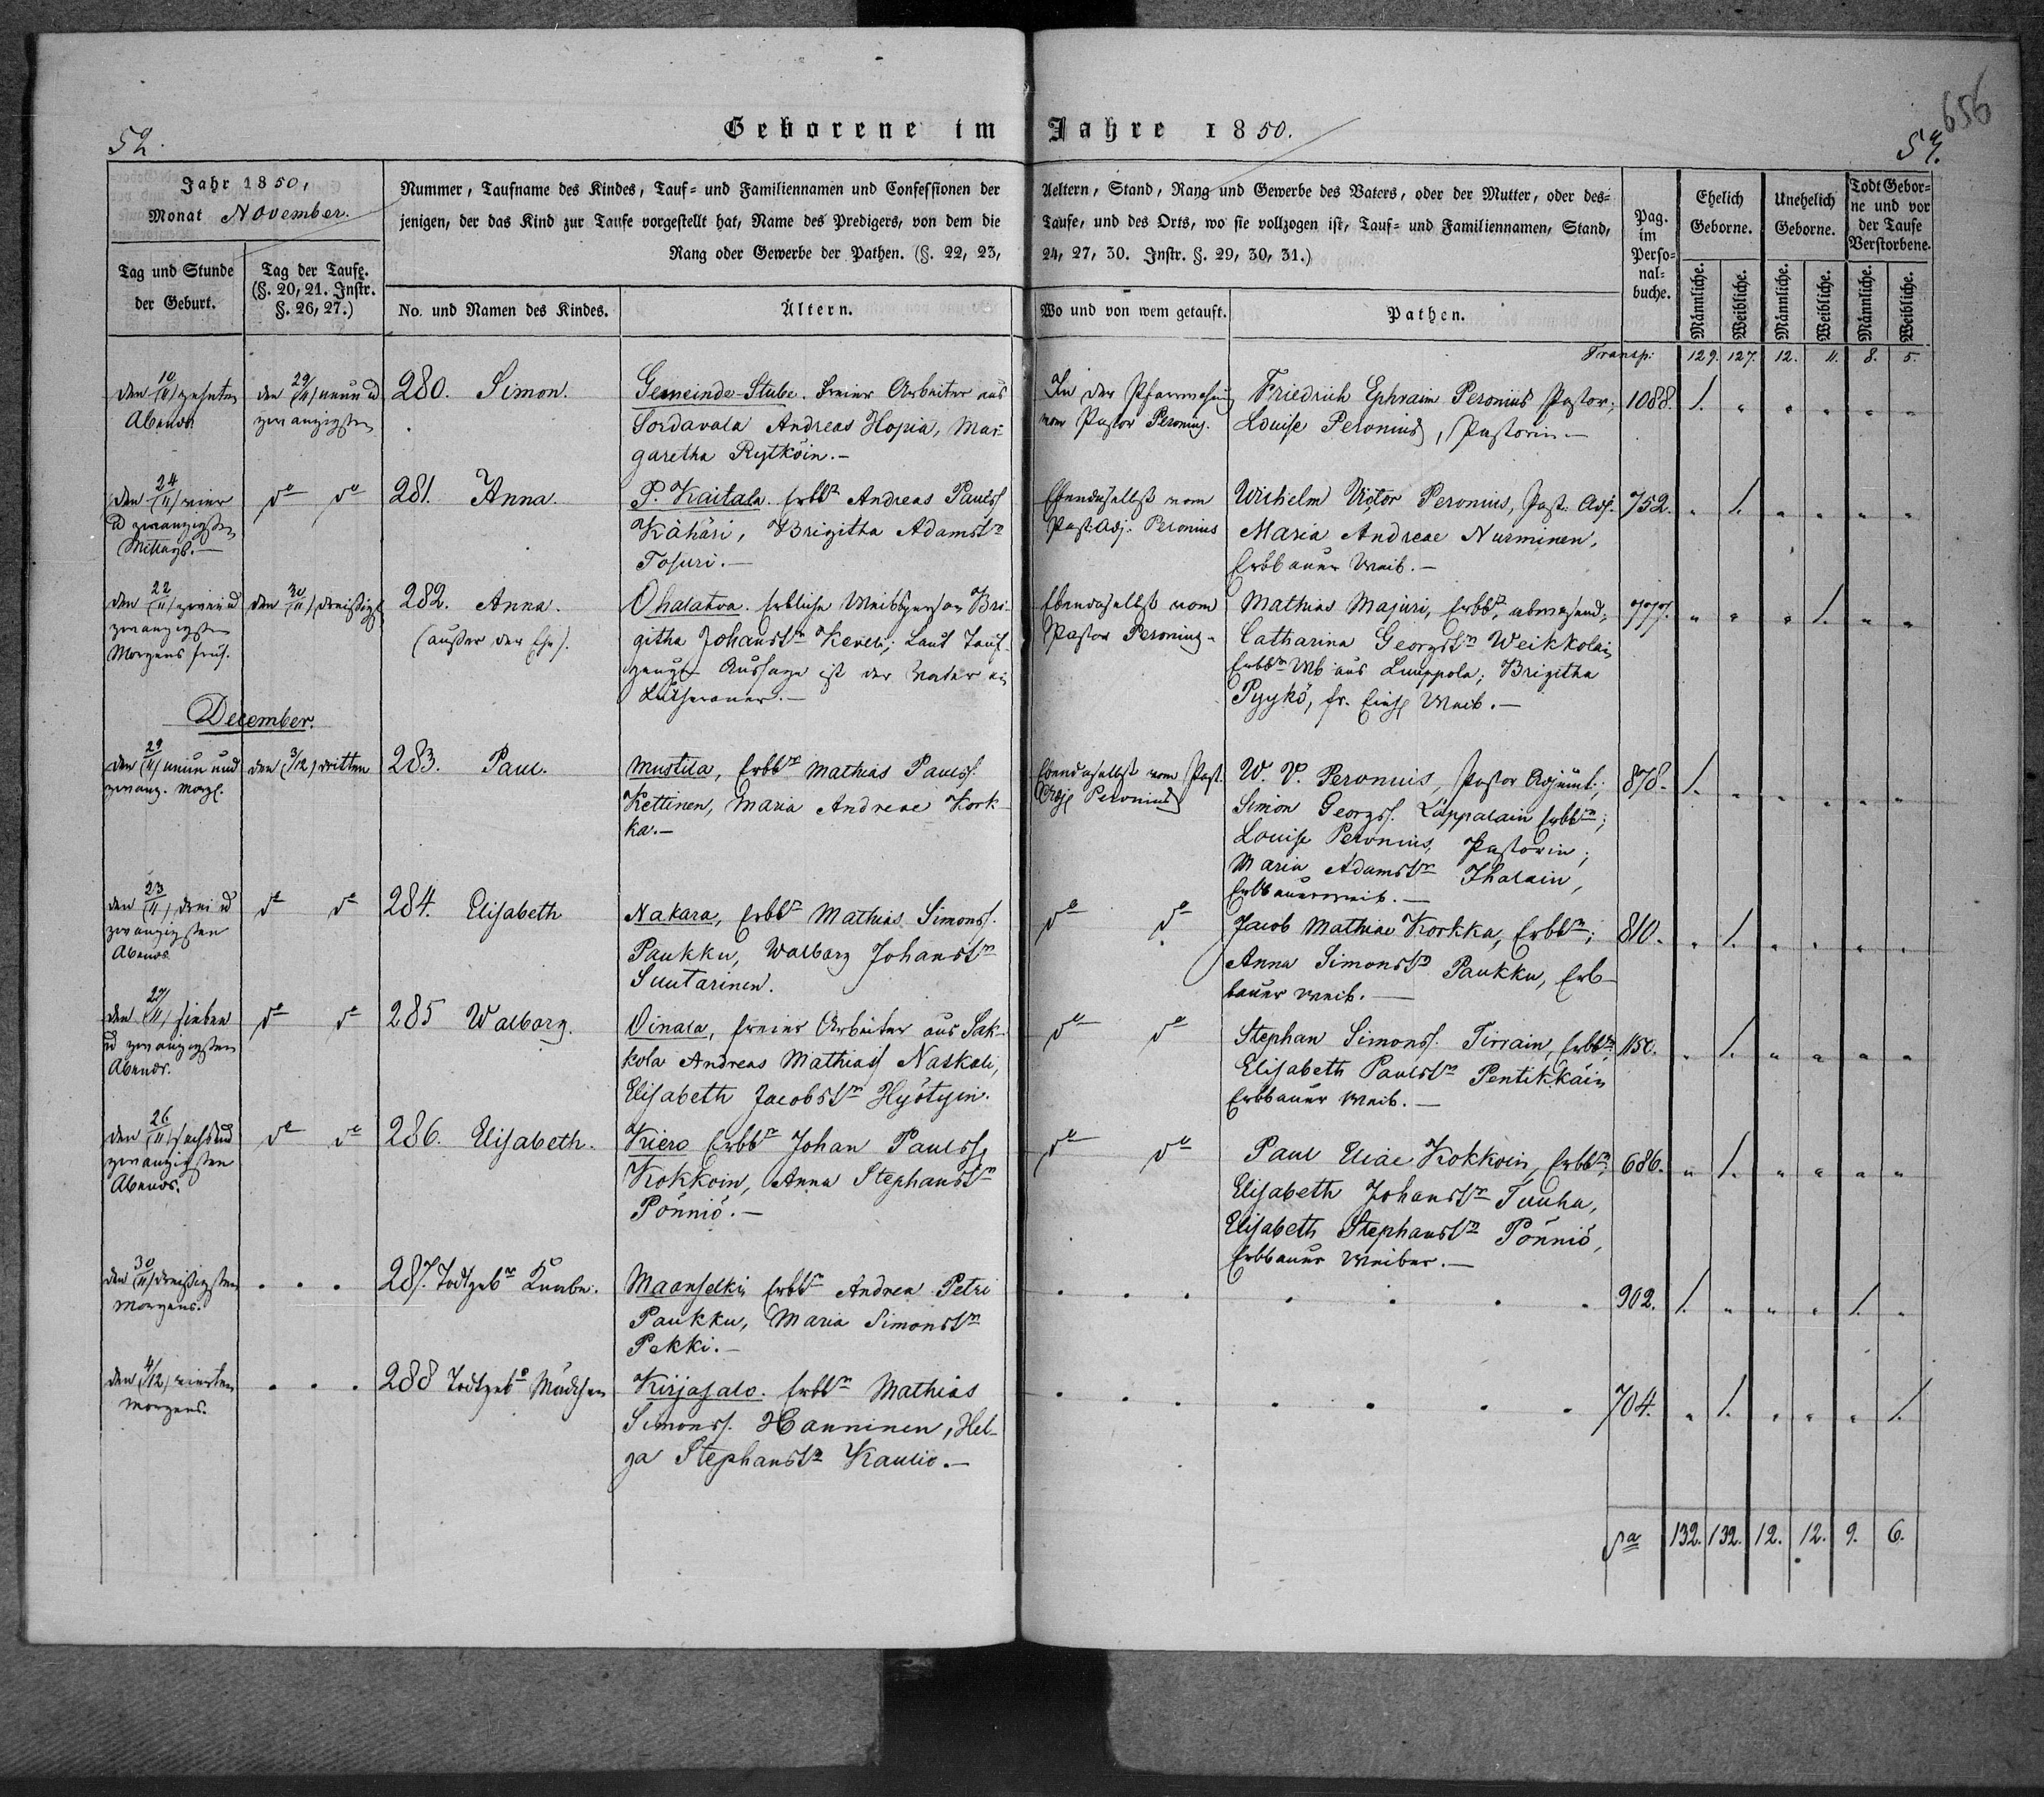 656
Geborene im Jahre 1850.
52.
53.
Jahr 1850,
Monat November.
Tag und Stunde
der Geburt.
Tag der Taufe.
(§. 20, 21. Instr.
§. 26, 27.)
Nummer, Taufname des Kindes, Tauf- und Familiennamen und Confessionen der Aeltern, Stand, Rang und Gewerbe des Vaters, oder der Mutter, oder des-
jenigen, der das Kind zur Taufe vorgestellt hat, Name des Predigers, von dem die Taufe, und des Orts, wo sie vollzogen ist, Tauf- und Familiennamen, Stand,
Rang oder Gewerbe der Pathen. (§. 22, 23, 24, 27, 30. Instr. §. 29, 30, 31.)
No. und Namen des Kindes.
Ältern.
Wo und von wem getauft.
Pathen.
Pag.
im
Perso-
nal-
buche.
Ehelich
Geborne.
Unehelich
Geborne.
Todt Gebor-
ne und vor
der Taufe
Verstorbene.
Männliche. Weibliche. Männliche. Weibliche. Männliche. Weibliche.
Transp: 129. 127. 12. 11. 8. 5.
den 10/11) zehnten
Abends
den 29/11) neun ud
zwanzigsten
280. Simon.
Gemeinde-Stube. Freier Arbeiter aus
Sordavala Andreas Hopia, Mar-
garetha Rytköin.-
In der
vom Pastor Peronius.
Friedrich Ephraim Peronius Pastor;
Louise Peronius, Pastorin.-
1088. 1. " " " " "
den 24/11) vier
ud zwanzigsten
Mittags.-
do do
281. Anna.
P. Kaitala. Erbbr Andreas Paulss
Kähäri, Brigitha Adamstr
Tosuri.-
Ebendaselbst vom
Past. Adj. Peronius
Wilhelm Victor Peronius, Past. Adj.
Maria Andreae Nurminen,
Erbbauer Weib.-
752. " 1. " " " "
den 22/11) zwei ud
zwanzigsten
Morgens früh.
den 30/11) dreißigst
282. Anna.
(außer der Ehe).
Ohalatva. Erbliche Weibsperson Bri-
githa Johanstr Kevell; Laut Tauf-
zeugn Aussage ist der Vater ein
Lutheraner.-
Ebendaselbst vom
Pastor Peronius-
Mathias Majuri, Erbbr, abwesend;
Catharina Georgstr Weikkolain
Erbbr Wb aus Luuppola; Brigitha
Pyykö, fr. Weib.-
777. " " " 1. " "
December.
den 29/11) neun und
zwanz. Morg.
den 3/12) dritten
283. Paul.
Mustila, Erbbr Mathias Paulss.
Kettinen, Maria Andreae Kork-
ka.-
Ebendaselbst vom Past.
Adj. Peronius
W. V. Peronius, Pastor Adjunct;
Simon Georgss. Läppalain Erbbr;
Louise Peronius, Pastorin;
Maria Adamstr Ihalain,
Erbbauerweib.-
878. 1. " " " " "
den 23/11) drei ud
zwanzigsten
Abends
do do
284. Elisabeth
Nakara, Erbbr Mathias Simonss.
Paukku, Walborg Johanstr
Suutarinen.
do do
Jacob Mathiae Korkka, Erbbr;
Anna Simonstr Paukku, Erb-
bauer Weib.-
810. " 1. " " " "
den 27/11) sieben
ud zwanzigsten
Abends.
do do
285 Walborg.
Oinala, freier Arbeiter aus Sak-
kola Andreas Mathiass Naskali,
Elisabeth Jacobstr Hyötyin.
do do
Stephan Simonss. Tirrain, Erbbr;
Elisabeth Paulstr Pentikkäin
Erbbauer Weib.-
1150. " 1. " " " "
den 26/11) sechs ud
zwanzigsten
Abends.
do do
286. Elisabeth.
Kiero Erbbr Johan Paulss
Kokkoin, Anna Stephanstr
Pönniö.-
do do
Paul Eliae Kokkoin, Erbbr;
Elisabeth Johanstr Tuuha,
Elisabeth Stephanstr Pönniö,
Erbbauer Weiber.-
686. " 1. " " " "
den 30/11) dreißigsten
Morgens.
287. Todtgebr Knabe.
Maanselkä Erbbr Andrea Petri
Paukku, Maria Simonstr
Pekki.-
902. 1. " " " 1. "
den 4/12) vierten
Morgens.
288 Todtgebs Mädchen
Kirjasalo. Erbbr Mathias
Simonss. Hanninen, Hel-
ga Stephanstr Kaulio.-
704. " 1. " " " 1.
Sa 132. 132. 12. 12. 9. 6.